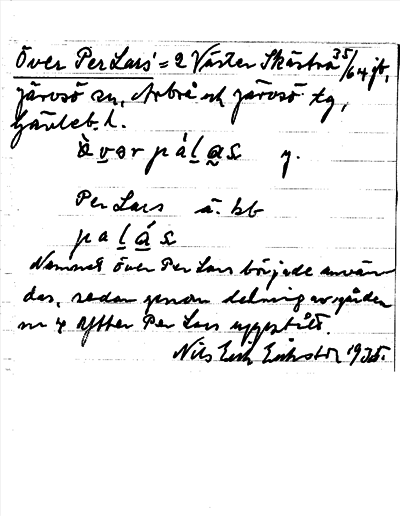 Över Per Lars' = 2 Väster Skästra 35/64 jb,
Järvsö sn, Arbrå och Järvsö tg,
Gävleb. l.
y.
Per Lars ä. bb
Namnet Över Per Lars började använ-
das, sedan genom delning av gården
nr 4 Ytter Per Lars uppstått.
Nils Erik Eriksson 1935.